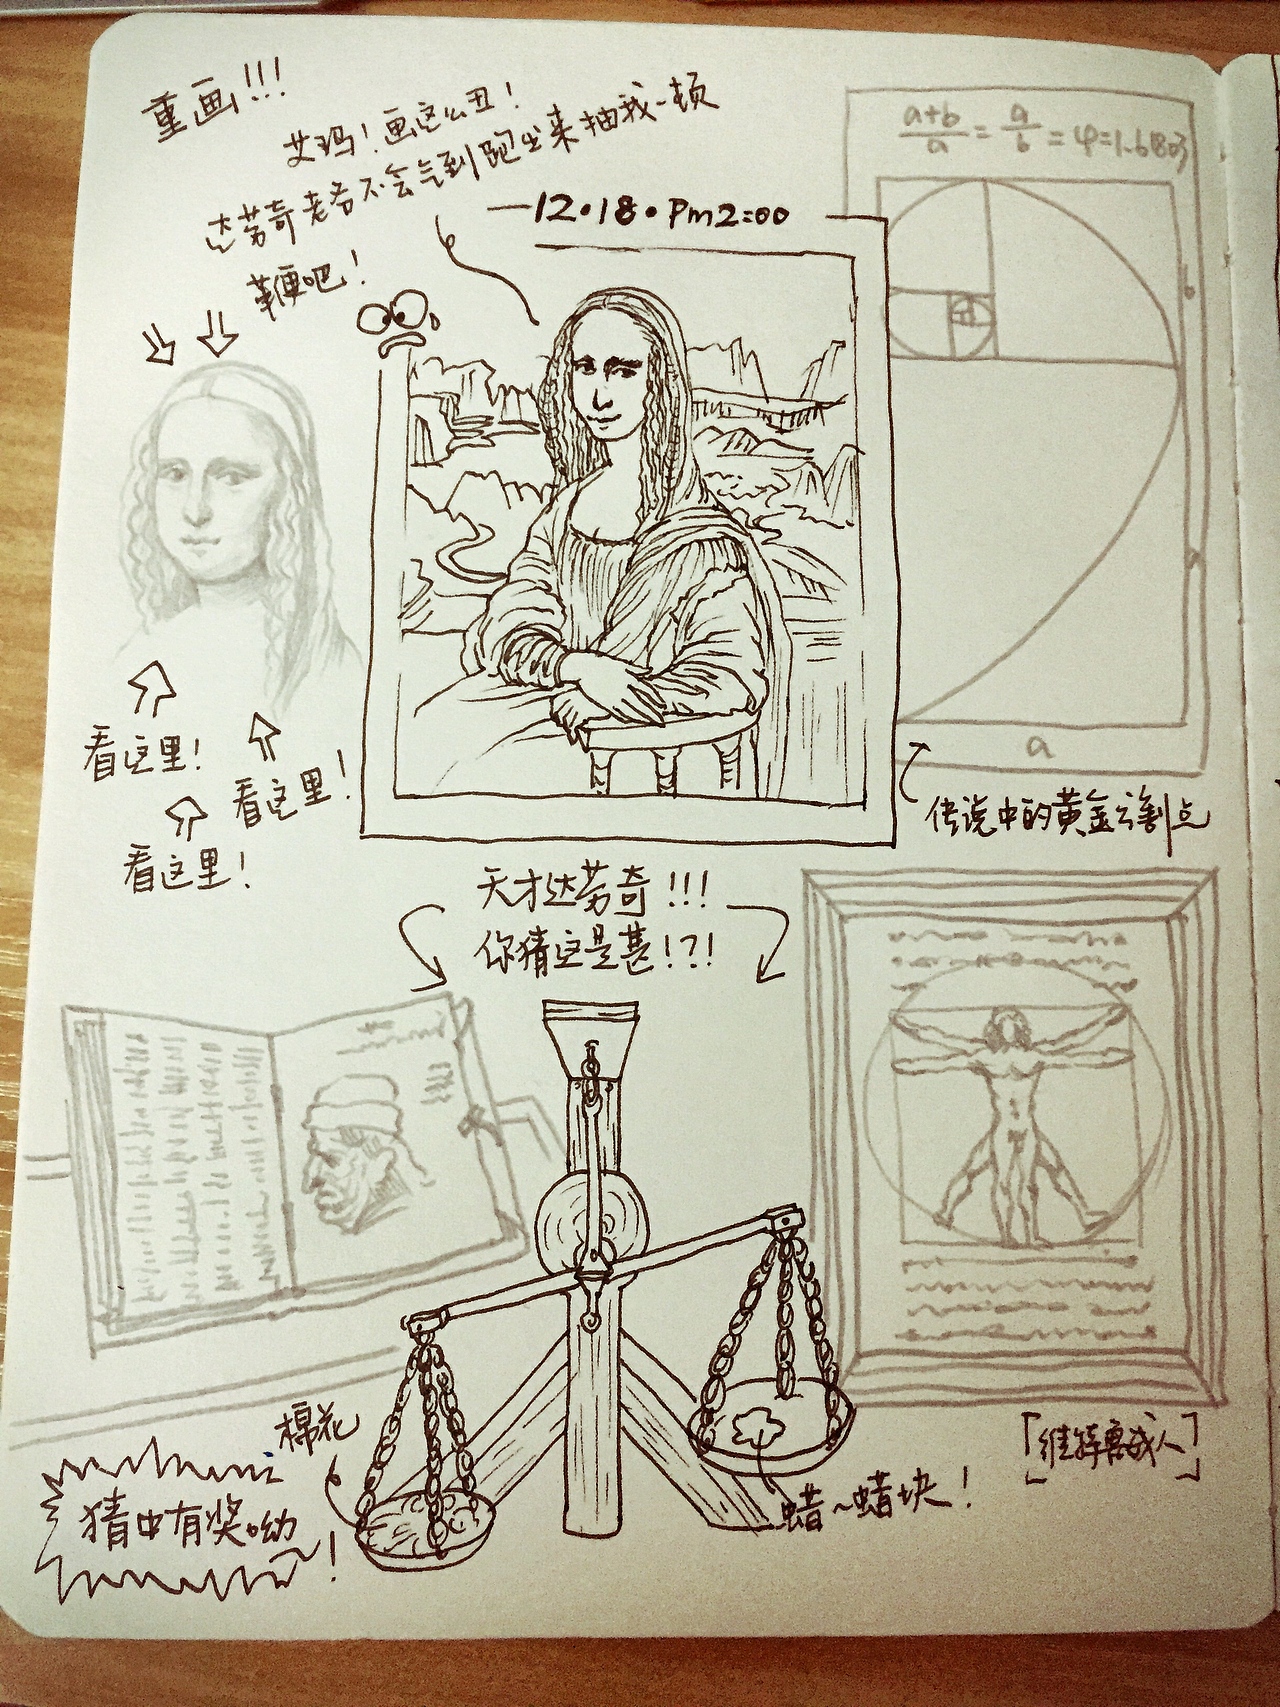 重画!!!
艾玛！画这么丑！
达芬奇老爷不会气到跑出来抽我一顿
鞭吧！
12·18·Pm2:00
a+b/a = a/b = φ=1.6803
b
a
看这里！
看这里！
看这里！
传说中的黄金分割点
天才达芬奇!!!
你猜这是甚!?!
棉花
猜中有奖呦~！
蜡~蜡块！
「维特鲁威人」